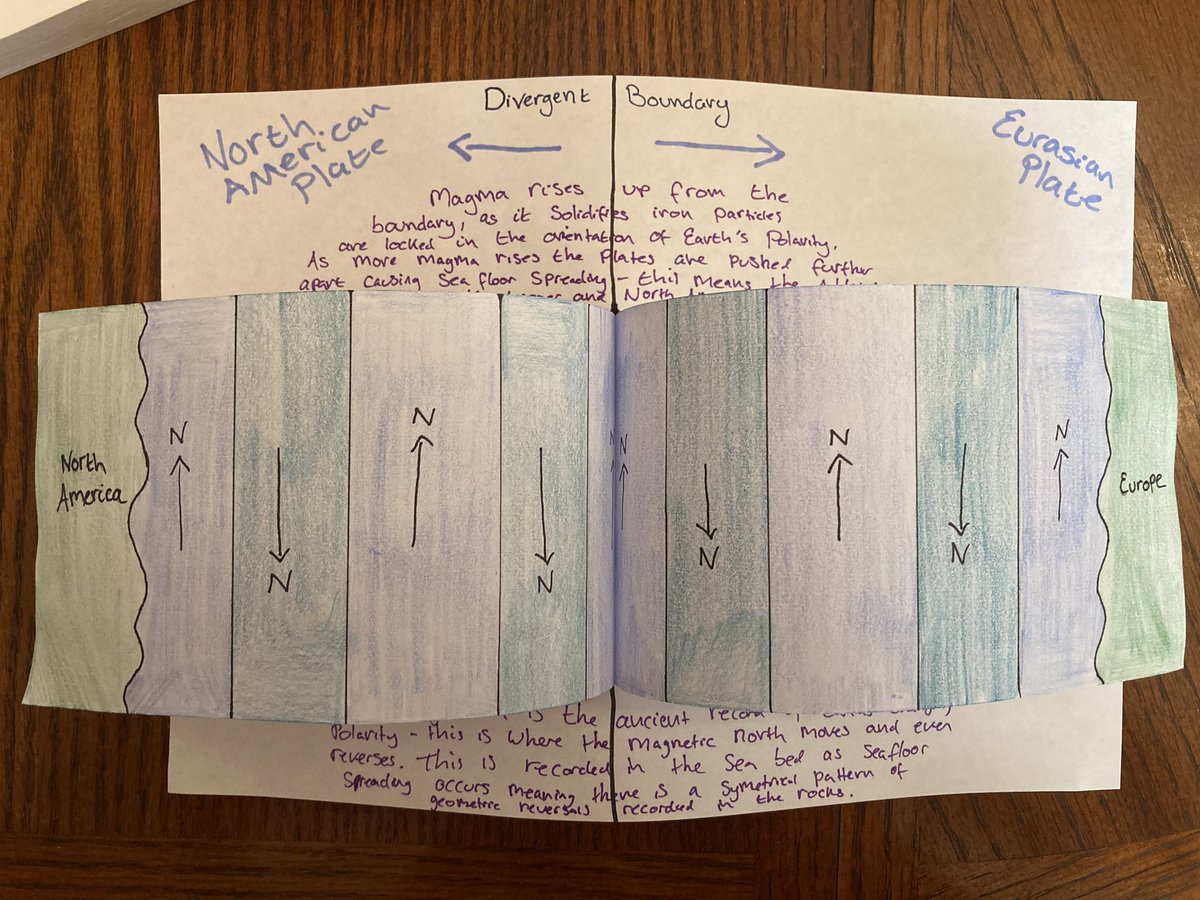 Divergent Boundary
North
American
Plate
Eurasian
Plate
Magma rises up from the
boundary, as it Solidifies iron particles
are locked in the orientation of Earth's Polarity.
As more magma rises the plates are pushed further
apart causing Sea floor Spreading - this means the
and North
North
America
N
N
N
N
N
N
N
N
N
N
Europe
is the ancient record
Polarity - this is where the magnetic north moves and even
reverses. This is recorded in the Sea bed as seafloor
Spreading occurs meaning there is a Symetrical pattern of
geometric reversals recorded in the rocks.